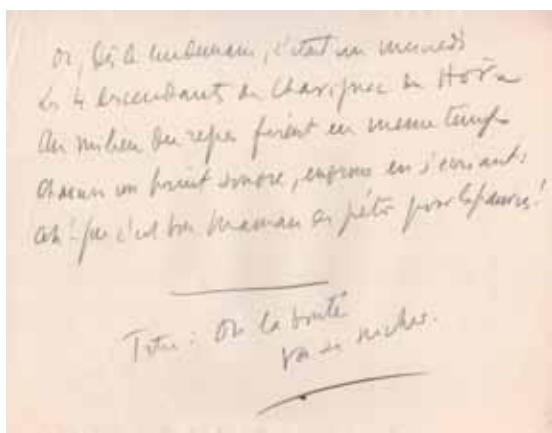 Or, dès le lendemain, c'était un mercredi
Les 4 descendants de Chavignac du
Au milieu du repas firent en même temps
Chacun un bruit sonore, en s'écriant :
Ah ! que c'est bon maman de péter pour les pauvres !
Titre : Où la bonté
va se nicher.